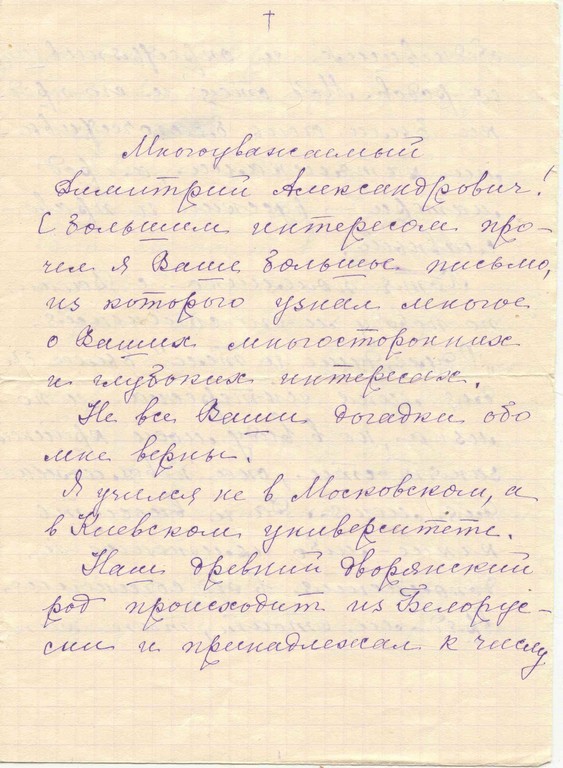 Многоуважаемый
Димитрий Александрович!
С большим интересом про-
чел я Ваше большое письмо,
из которого узнал многое
о Ваших многосторонних
и глубоких интересах.
Не все Ваши догадки обо
мне верны.
Я учился не в Московском, а
в Киевском университете.
Наш древний дворянский
род происходит из Белорус-
сии и принадлежал к числу